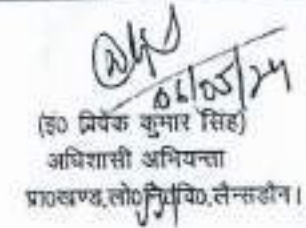 06/05/24
(इ0 विवेक कुमार सिंह)
अधिशासी अभियन्ता
प्रा०खण्ड,लो०नि०वि०,लैन्सडौन।